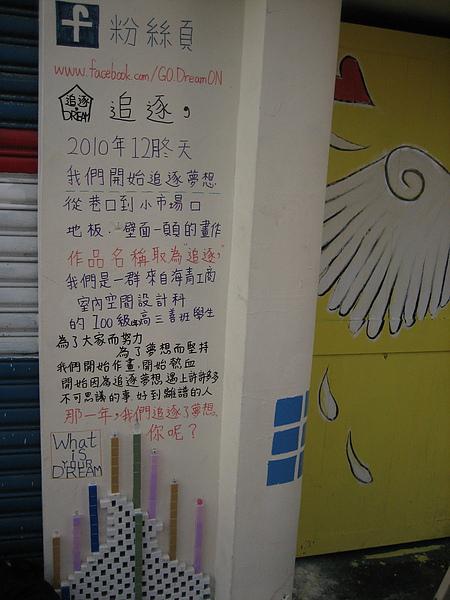 f 粉絲頁
www.facebook.com/GO.DreamON
追逐 DREAM 追逐,
2010年12月冬天
我們開始追逐夢想
從巷口到小市場口
地板、壁面一頭的畫作
作品名稱取為"追逐,"
我們是一群來自海青工商
室內空間設計科
的100級高三善班學生
為了大家而努力
為了夢想而堅持
我們開始作畫,開始熱血
開始因為追逐夢想遇上許許多多
不可思議的事好到離譜的人
那一年,我們追逐了夢想
你呢?
What
is
YOUR
DREAM